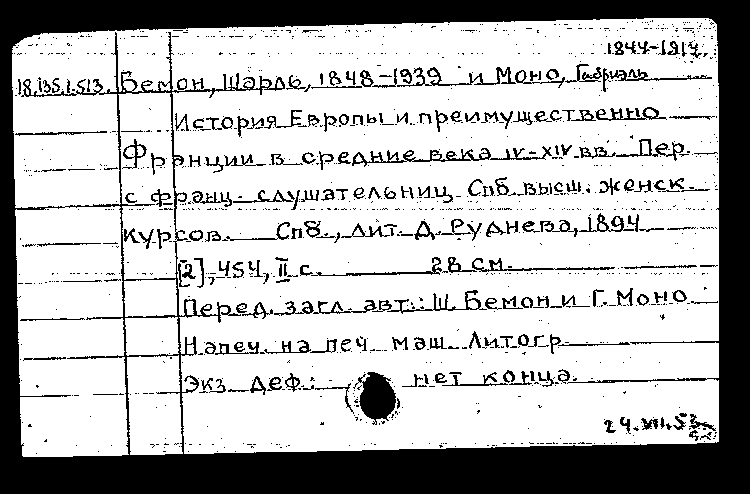 1844-1914.
18.135.1.513. Бемон, Шарль, 1848-1939 и Моно, Габриэль
История Европы и преимущественно
Франции в средние века IV-XIV вв. Пер.
с франц. слушательниц Спб. высш. женск.
курсов. Спб., лит. Д. Руднева, 1894
[2], 454, II с. 28 см.
Перед. загл. авт.: Ш. Бемон и Г. Моно
Напеч. на печ. маш. Литогр.
Экз. деф.: нет конца.
24.VII.53